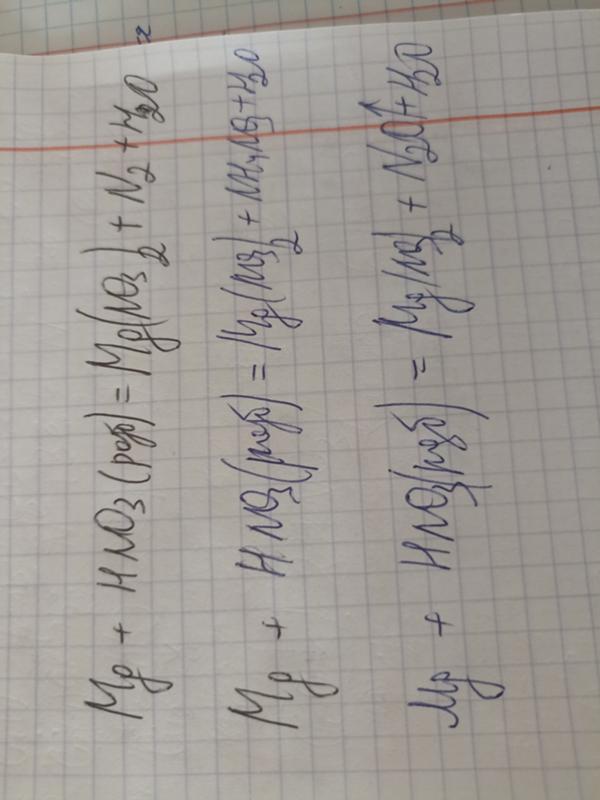 Mg + HNO3 (разб) = Mg(NO3)2 + N2 + H2O
Mg + HNO3 (разб) = Mg(NO3)2 + NH4NO3 + H2O
Mg + HNO3 (разб) = Mg(NO3)2 + N2O↑ + H2O